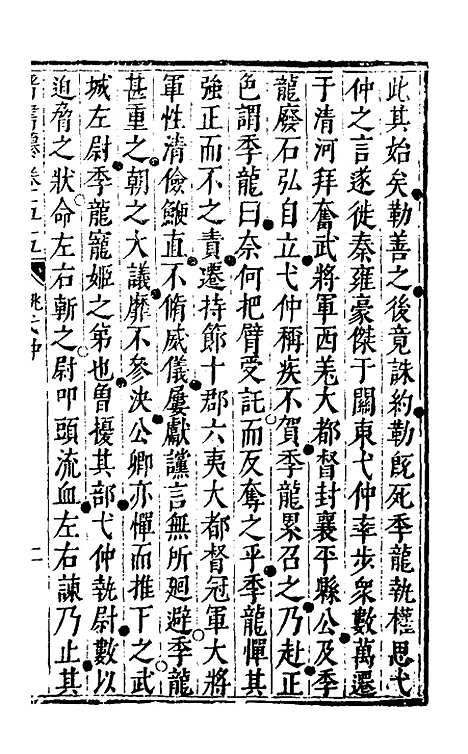 此其始矣勒善之後竟誅約勒既死季龍執權思弋
仲之言遂徙秦雍豪傑于關東弋仲率步衆數萬遷
于清河拜奮武將軍西羌大都督封襄平縣公及季
龍廢石弘自立弋仲稱疾不賀季龍累召之乃赴正
色謂季龍曰奈何把臂受託而反奪之乎季龍憚其
強正而不之責遷持節十郡六夷大都督冠軍大將
軍性清儉鯁直不脩威儀屢獻讜言無所廻避季龍
甚重之朝之大議靡不參決公卿亦憚而推下之武
城左尉季龍寵姬之弟也曾擾其部弋仲執尉數以
迫脅之狀命左右斬之尉叩頭流血左右諫乃止其
晉書 卷一百十六 姚弋仲 二